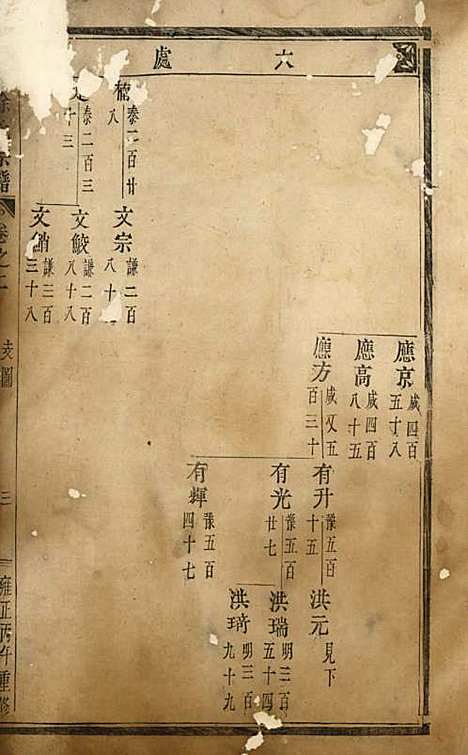 六 處
應京 咸四百五十八
應高 咸四百八十五
應方 咸又五百三十
有升 豫五百十五
有光 豫五百廿七
有輝 豫五百四十七
洪元 見下
洪瑞 明三百五十四
洪琦 明三百九十九
楠 泰二百廿八
泰二百三十三
文宗 謙二百八十
文鮫 謙二百八十八
文鮹 謙三百三十八
宗譜
卷之
支圖
三
雍正丙午重修